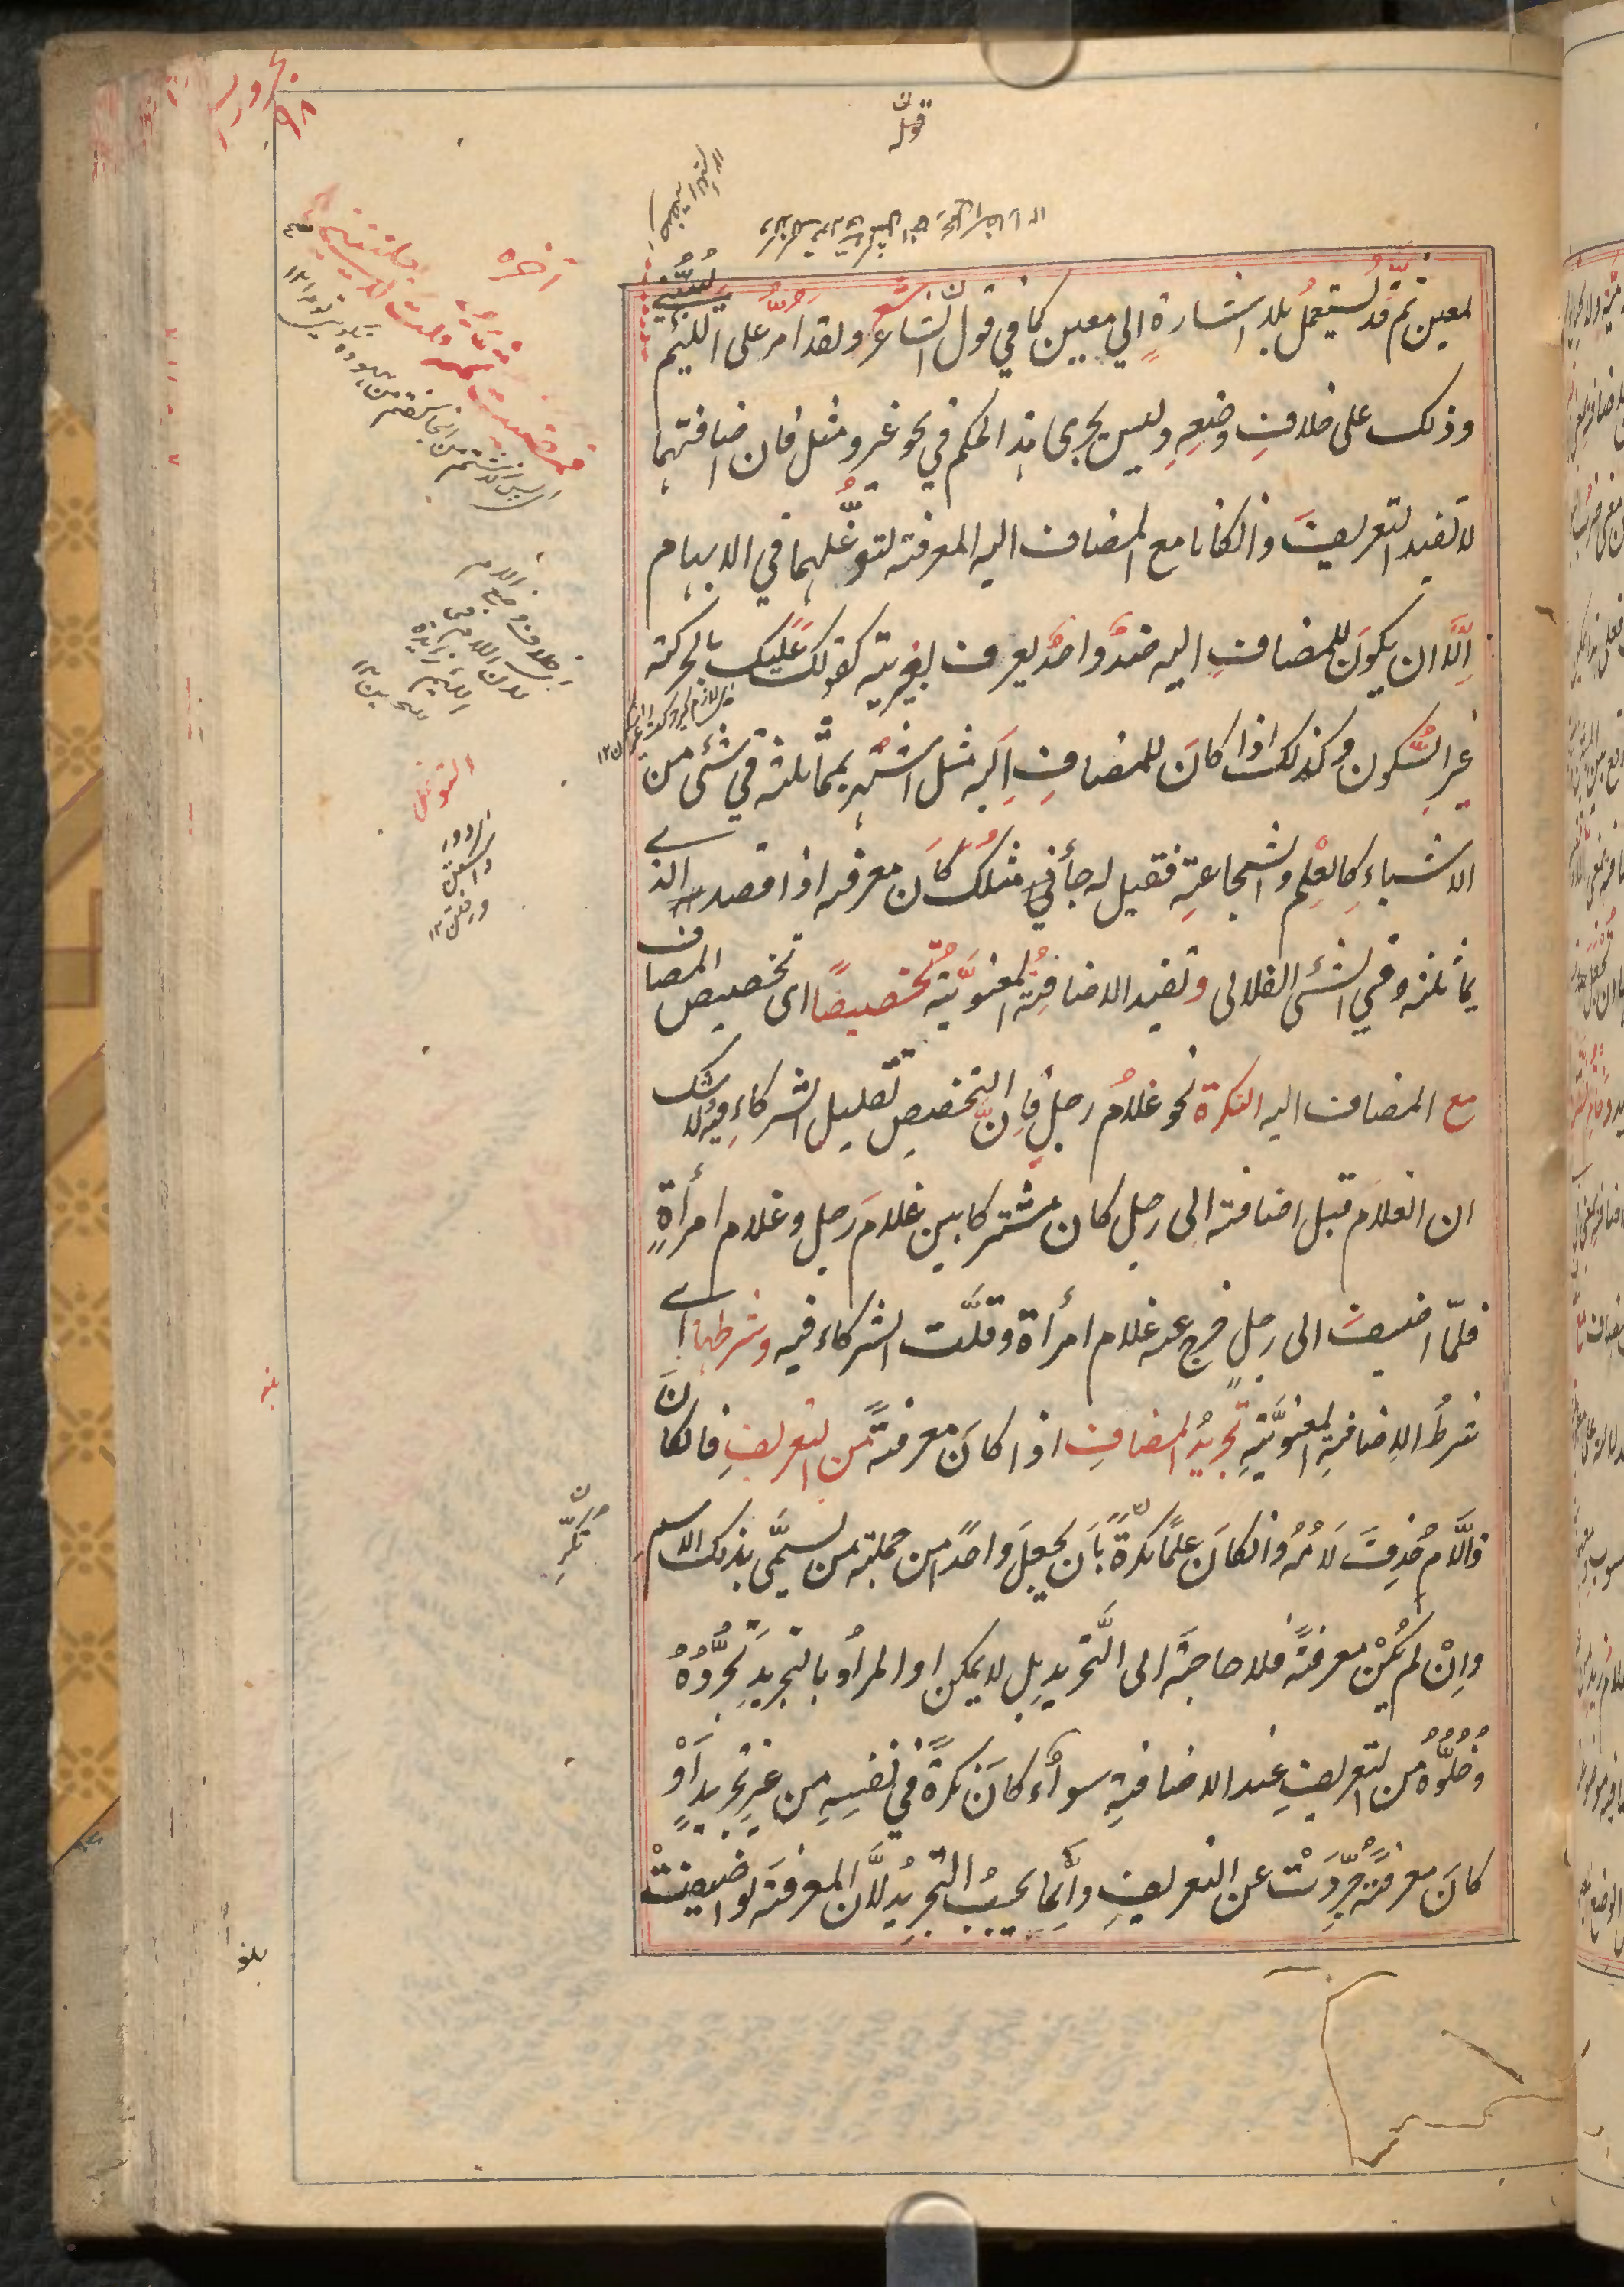 مجرورات
٩٨
قوله
آخره
لمعين ثمّ قد يُستعمل بلا اشارةٍ الى معين كما في قول الشاعر ولقد امرُّ على اللئيم يسبّني
وذلك على خلافِ وضعِهِ وليس يجرى هذا الحكم في نحو غير و مثل فان اضافتهما
لا تفيد التعريفَ وان كانا مع المضاف اليه المعرفة لتوغُّلهما في الابهام
اِلَّا ان يكونَ للمضافِ اليه ضدٌّ واحدٌ يعرف بغيريته كقولك عليك بالحركة
غيرِ السُّكون وكذلك اذا كانَ للمضافِ اِليه مثل اشتهر بمماثلته في شئ من
الاشياءِ كالعِلْم والشجاعةِ فقيل له جأني مثلك كانَ معرفه اذا قصد الذى
يماثله في الشئ الفلانى وتفيد الاضافةُ المعنويَّةُ تخصيصًا اى تخصيص المضاف
مع المضاف اليه النكرة نحو غلامُ رجلٍ فاِنَّ التخصيص تقليل الشركاءِ ولا شك
ان الغلامَ قبل اضافته الى رجل كان مشتركا بين غلامَ رجلٍ وغلام امرأةٍ
فلمّا اضيفَ الى رجلٍ خرج عنه غلام امرأة وقلَّت الشركاء فيه وشرطها اى
شرطُ الاِضافةِ المعنويَّةِ تجريدُ المضافِ اذا كانَ معرفةً من التعريفِ فان كانَ
ذا اللَّام حُذِفَ لَامُهُ وان كانَ علمًا نكّرَ بأن يجعلَ واحدًا من جملة من يسمَّى بذلك الاسم
واِنْ لم يكنْ معرفةً فلا حاجةَ الى التَّجريد بل لا يمكن او المرادُ بالتجريدِ تجرُّدُهُ
وخُلُوُّهُ من التعريفِ عند الاضافةِ سواءٌ كانَ نكرةً في نفسِهِ من غيرِ تجريدٍ أوْ
كانَ معرفةً جُرِّدَتْ عن التعريفِ وانَّما يجبُ التجريدُ لأنَّ المعرفةَ لو اضيفتْ
فمضيت ثمه قلت لا يعنيني
التوغل
دور